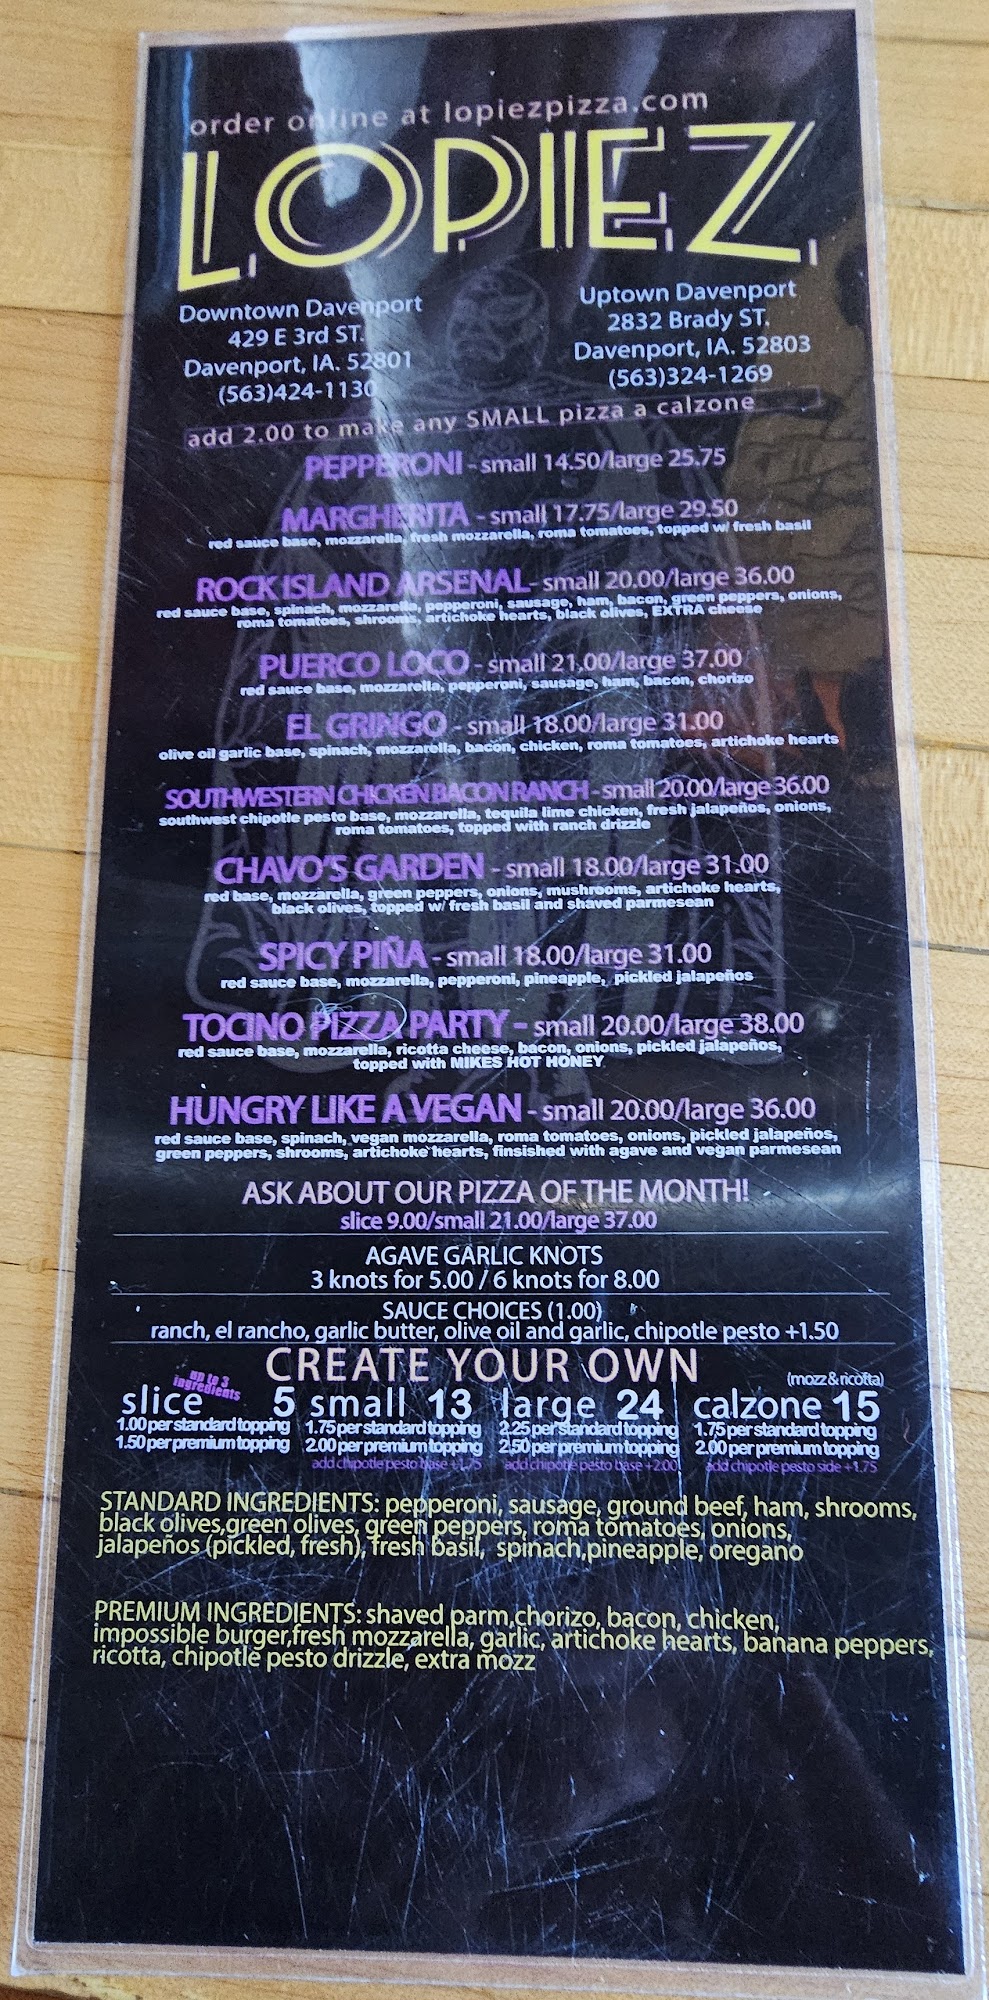 order online at lopiezpizza.com
LOPIEZ
Downtown Davenport
429 E 3rd ST.
Davenport, IA. 52801
(563)424-1130
Uptown Davenport
2832 Brady ST.
Davenport, IA. 52803
(563)324-1269
add 2.00 to make any SMALL pizza a calzone
PEPPERONI - small 14.50/large 25.75
MARGHERITA - small 17.75/large 29.50
red sauce base, mozzarella, fresh mozzarella, roma tomatoes, topped w/ fresh basil
ROCK ISLAND ARSENAL- small 20.00/large 36.00
red sauce base, spinach, mozzarella, pepperoni, sausage, ham, bacon, green peppers, onions,
roma tomatoes, shrooms, artichoke hearts, black olives, EXTRA cheese
PUERCO LOCO - small 21.00/large 37.00
red sauce base, mozzarella, pepperoni, sausage, ham, bacon, chorizo
EL GRINGO - small 18.00/large 31.00
olive oil garlic base, spinach, mozzarella, bacon, chicken, roma tomatoes, artichoke hearts
SOUTHWESTERN CHICKEN BACON RANCH - small 20.00/large 36.00
southwest chipotle pesto base, mozzarella, tequila lime chicken, fresh jalapeños, onions,
roma tomatoes, topped with ranch drizzle
CHAVO'S GARDEN - small 18.00/large 31.00
red base, mozzarella, green peppers, onions, mushrooms, artichoke hearts,
black olives, topped w/ fresh basil and shaved parmesean
SPICY PIÑA - small 18.00/large 31.00
red sauce base, mozzarella, pepperoni, pineapple, pickled jalapeños
TOCINO PIZZA PARTY - small 20.00/large 38.00
red sauce base, mozzarella, ricotta cheese, bacon, onions, pickled jalapeños,
topped with MIKES HOT HONEY
HUNGRY LIKE A VEGAN - small 20.00/large 36.00
red sauce base, spinach, vegan mozzarella, roma tomatoes, onions, pickled jalapeños,
green peppers, shrooms, artichoke hearts, finsished with agave and vegan parmesean
ASK ABOUT OUR PIZZA OF THE MONTH!
slice 9.00/small 21.00/large 37.00
AGAVE GARLIC KNOTS
3 knots for 5.00 / 6 knots for 8.00
SAUCE CHOICES (1.00)
ranch, el rancho, garlic butter, olive oil and garlic, chipotle pesto +1.50
CREATE YOUR OWN
up to 3
ingredients
slice 5
1.00 per standard topping
1.50 per premium topping
small 13
1.75 per standard topping
2.00 per premium topping
add chipotle pesto base +1.75
large 24
2.25 per standard topping
2.50 per premium topping
add chipotle pesto base +2.00
(mozz & ricotta)
calzone 15
1.75 per standard topping
2.00 per premium topping
add chipotle pesto side +1.75
STANDARD INGREDIENTS: pepperoni, sausage, ground beef, ham, shrooms,
black olives,green olives, green peppers, roma tomatoes, onions,
jalapeños (pickled, fresh), fresh basil, spinach,pineapple, oregano
PREMIUM INGREDIENTS: shaved parm,chorizo, bacon, chicken,
impossible burger,fresh mozzarella, garlic, artichoke hearts, banana peppers,
ricotta, chipotle pesto drizzle, extra mozz